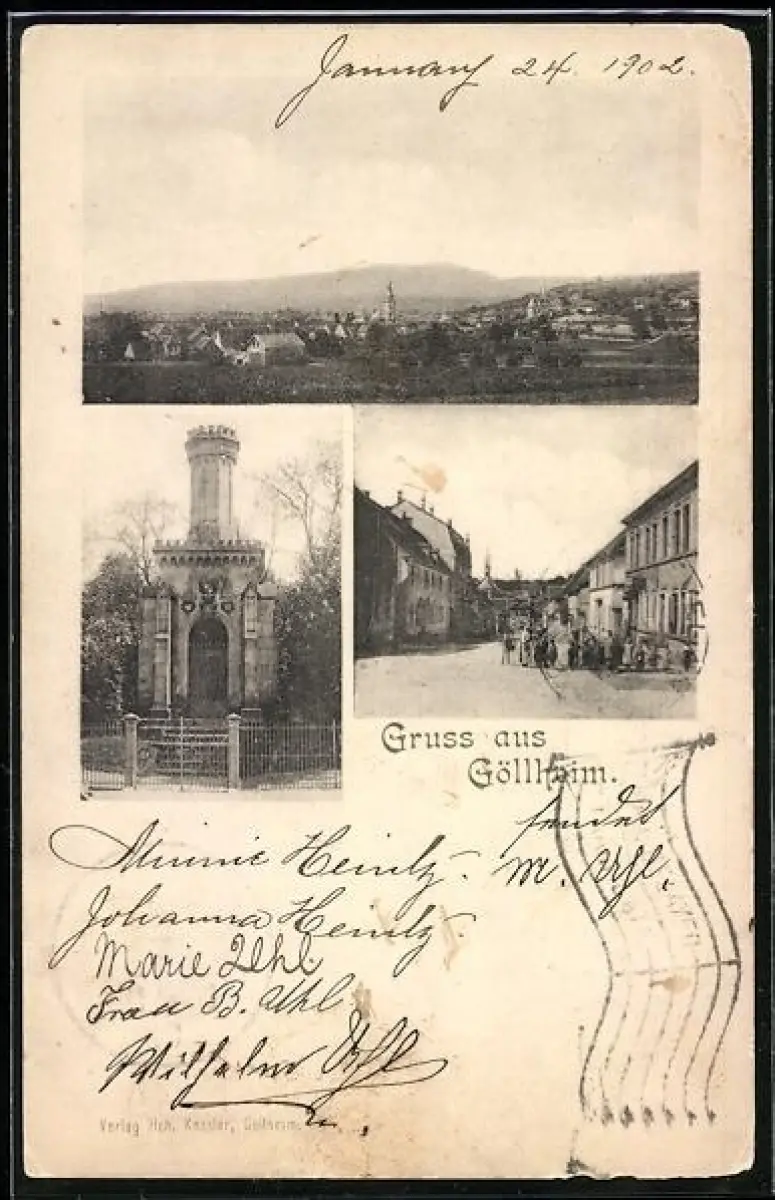 January 24. 1902.
Gruss aus
Göllheim.
sendet
M. Uhl.
Minnie Heintz.
Johanna Heintz.
Marie Uhl.
Frau B. Uhl
Wilhelm Uhl
Verlag Hch. Kessler, Göllheim.